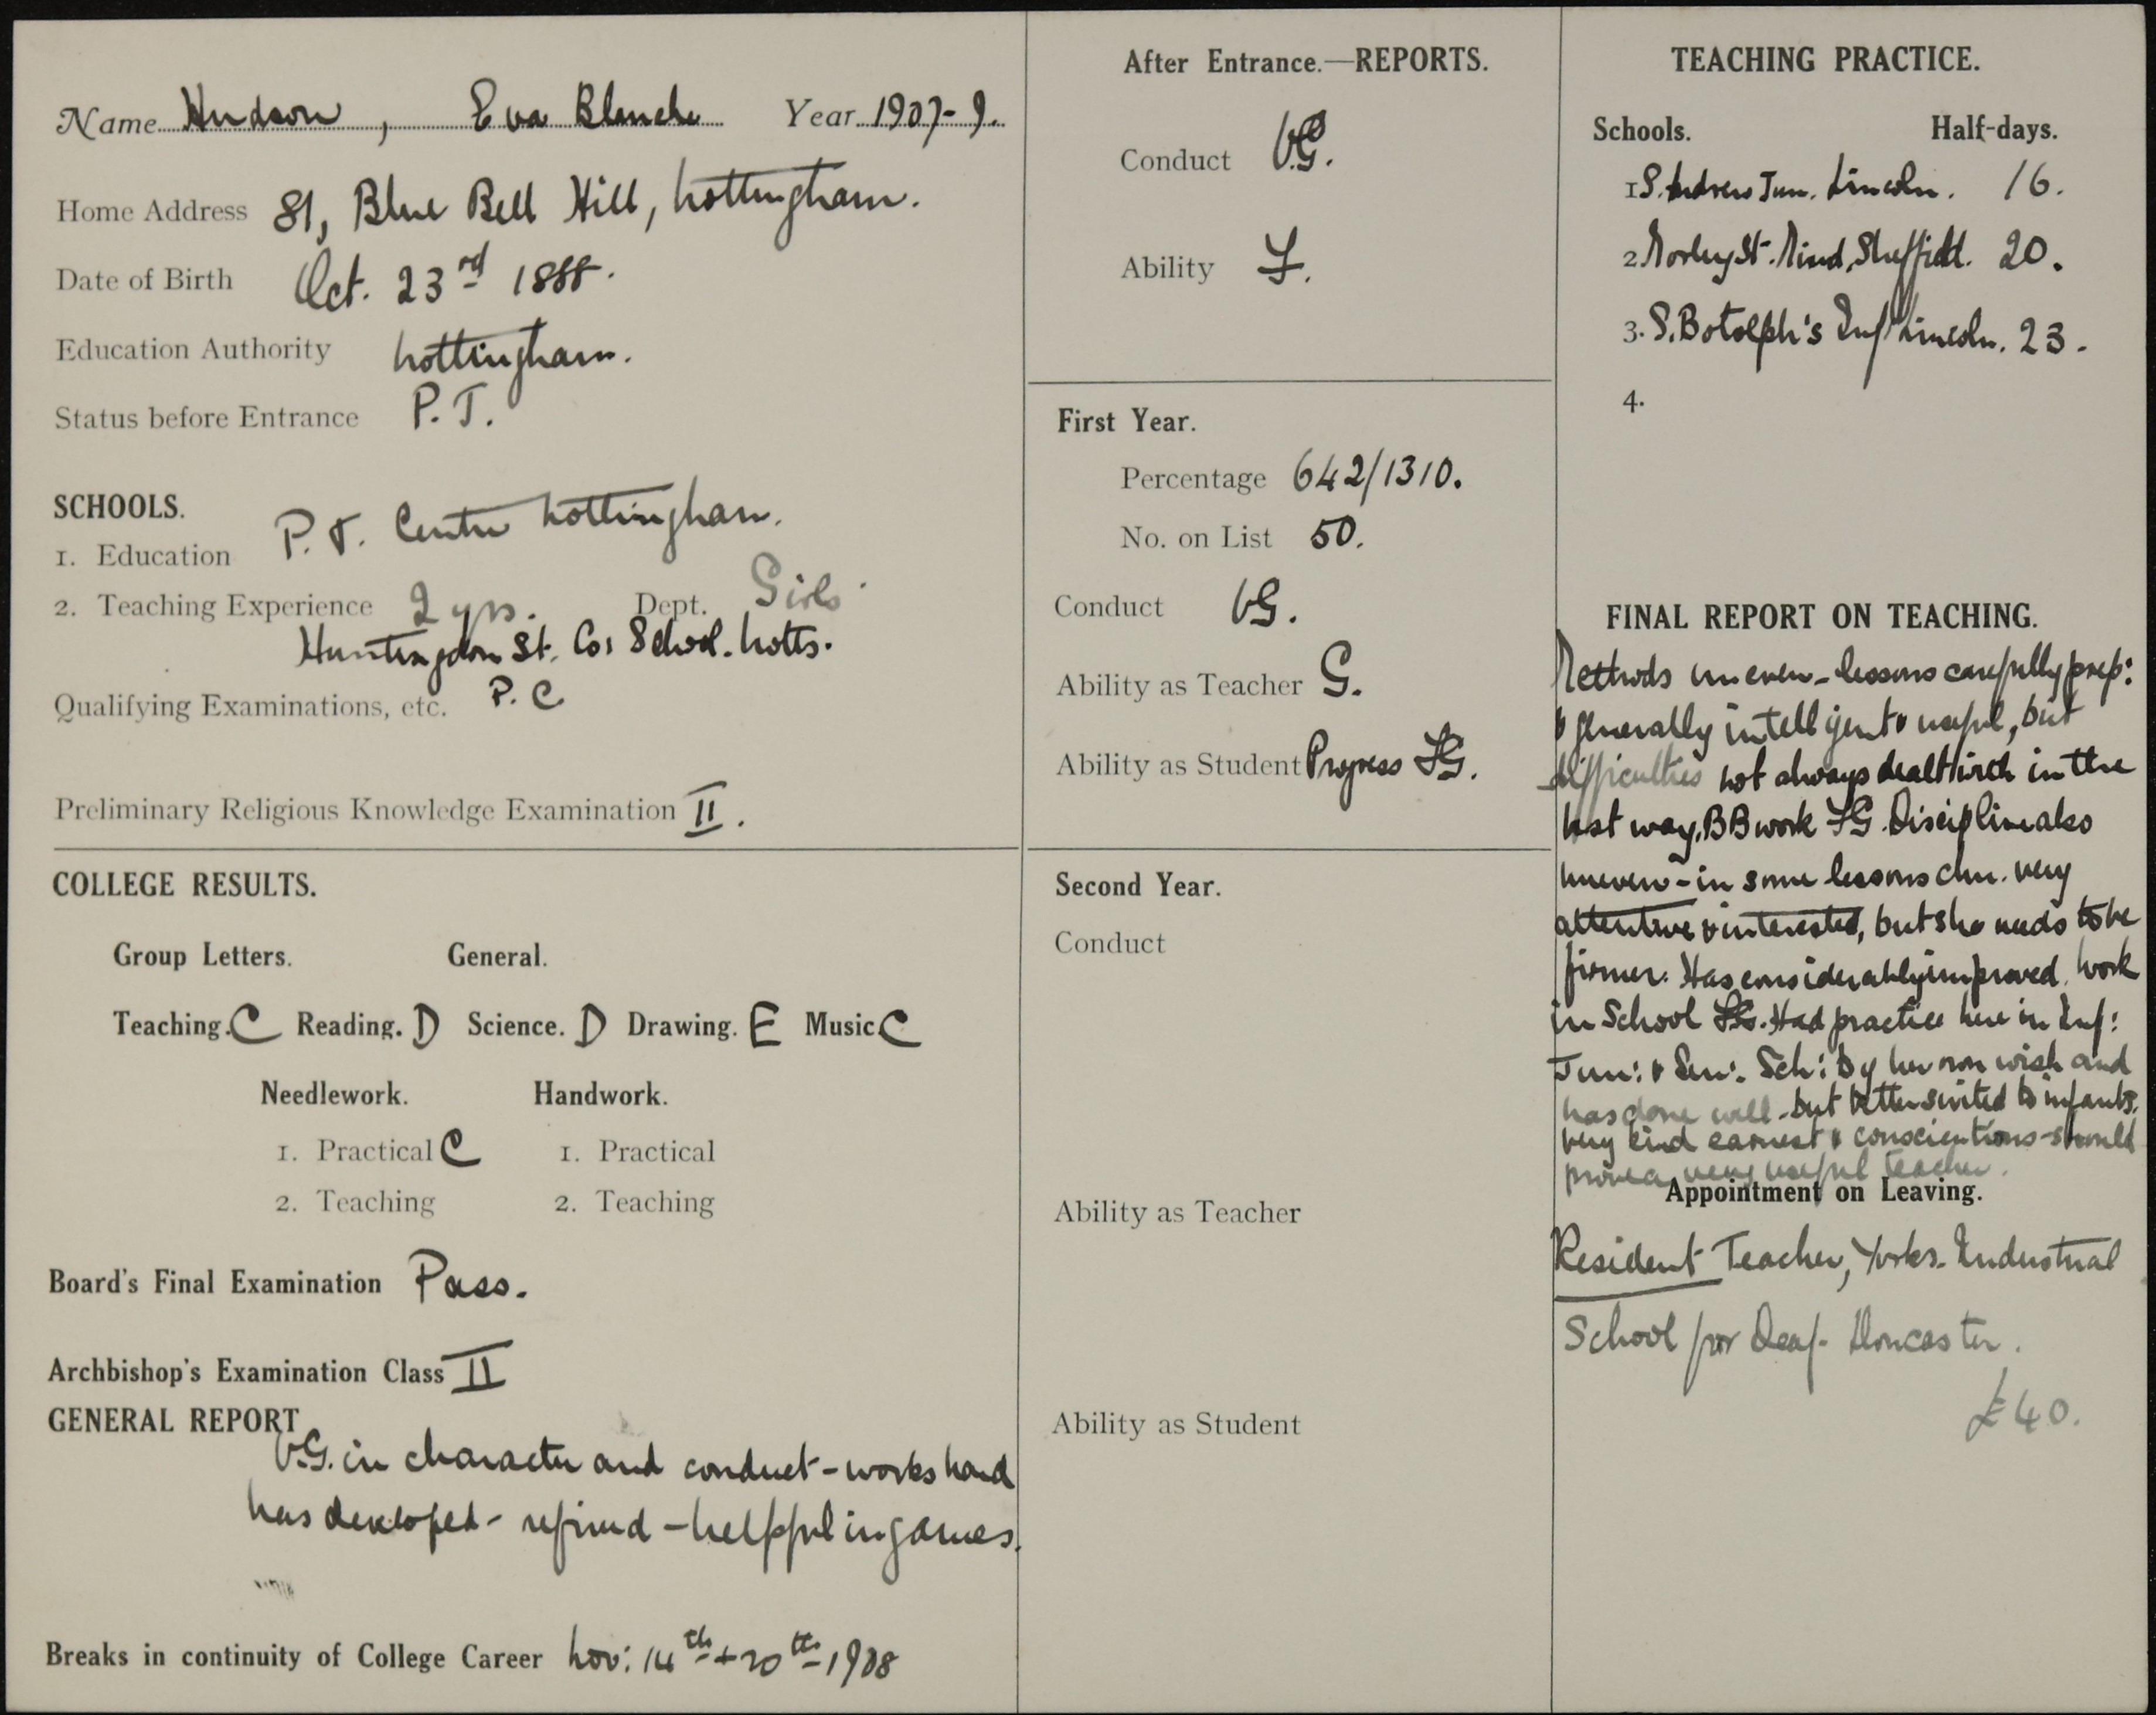 Name Hudson, Eva Blanche Year 1907-9.
Home Address 81, Blue Bell Hill, Nottingham.
Date of Birth Oct. 23rd 1888.
Education Authority Nottingham.
Status before Entrance P.T.
SCHOOLS.
1. Education P.T. Centre Nottingham.
2. Teaching Experience 2 yrs. Dept. Girls
Huntingdon St. Co: School. Notts.
Qualifying Examinations, etc. P.C
Preliminary Religious Knowledge Examination II.
COLLEGE RESULTS.
Group Letters. General.
Teaching. C Reading. D Science. D Drawing. E Music C
Needlework. Handwork.
1. Practical C 1. Practical
2. Teaching 2. Teaching
Board's Final Examination Pass.
Archbishop's Examination Class II
GENERAL REPORT
V.G. in character and conduct - works hard
has developed - refined - helpful in games.
Breaks in continuity of College Career Nov: 14th + 20th 1908
After Entrance.—REPORTS.
Conduct V.G.
Ability F.
First Year.
Percentage 642/1310.
No. on List 50.
Conduct VG.
Ability as Teacher G.
Ability as Student Progress FG.
Second Year.
Conduct
Ability as Teacher
Ability as Student
TEACHING PRACTICE.
Schools. Half-days.
1 S. Andrews Jun. Lincoln. 16.
2 St. Sheffield. 20.
3. S. Botolph's Inf Lincoln. 23.
4.
FINAL REPORT ON TEACHING.
Methods uneven - lessons carefully prep:
& generally intelligent & useful, but
difficulties not always dealt with in the
best way. BB work FG. Discipline also
uneven - in some lessons chn. very
attentive & interested, but she needs to be
firmer. Has considerably improved. Work
in School FG. Had practice here in Inf:
Jun: & Sen: Sch: by her own wish and
has done well - but better suited to infants.
very kind earnest & conscientious - should
prove a very useful teacher.
Appointment on Leaving.
Resident Teacher, Yorks. Industrial
School for Deaf - Doncaster.
£40.